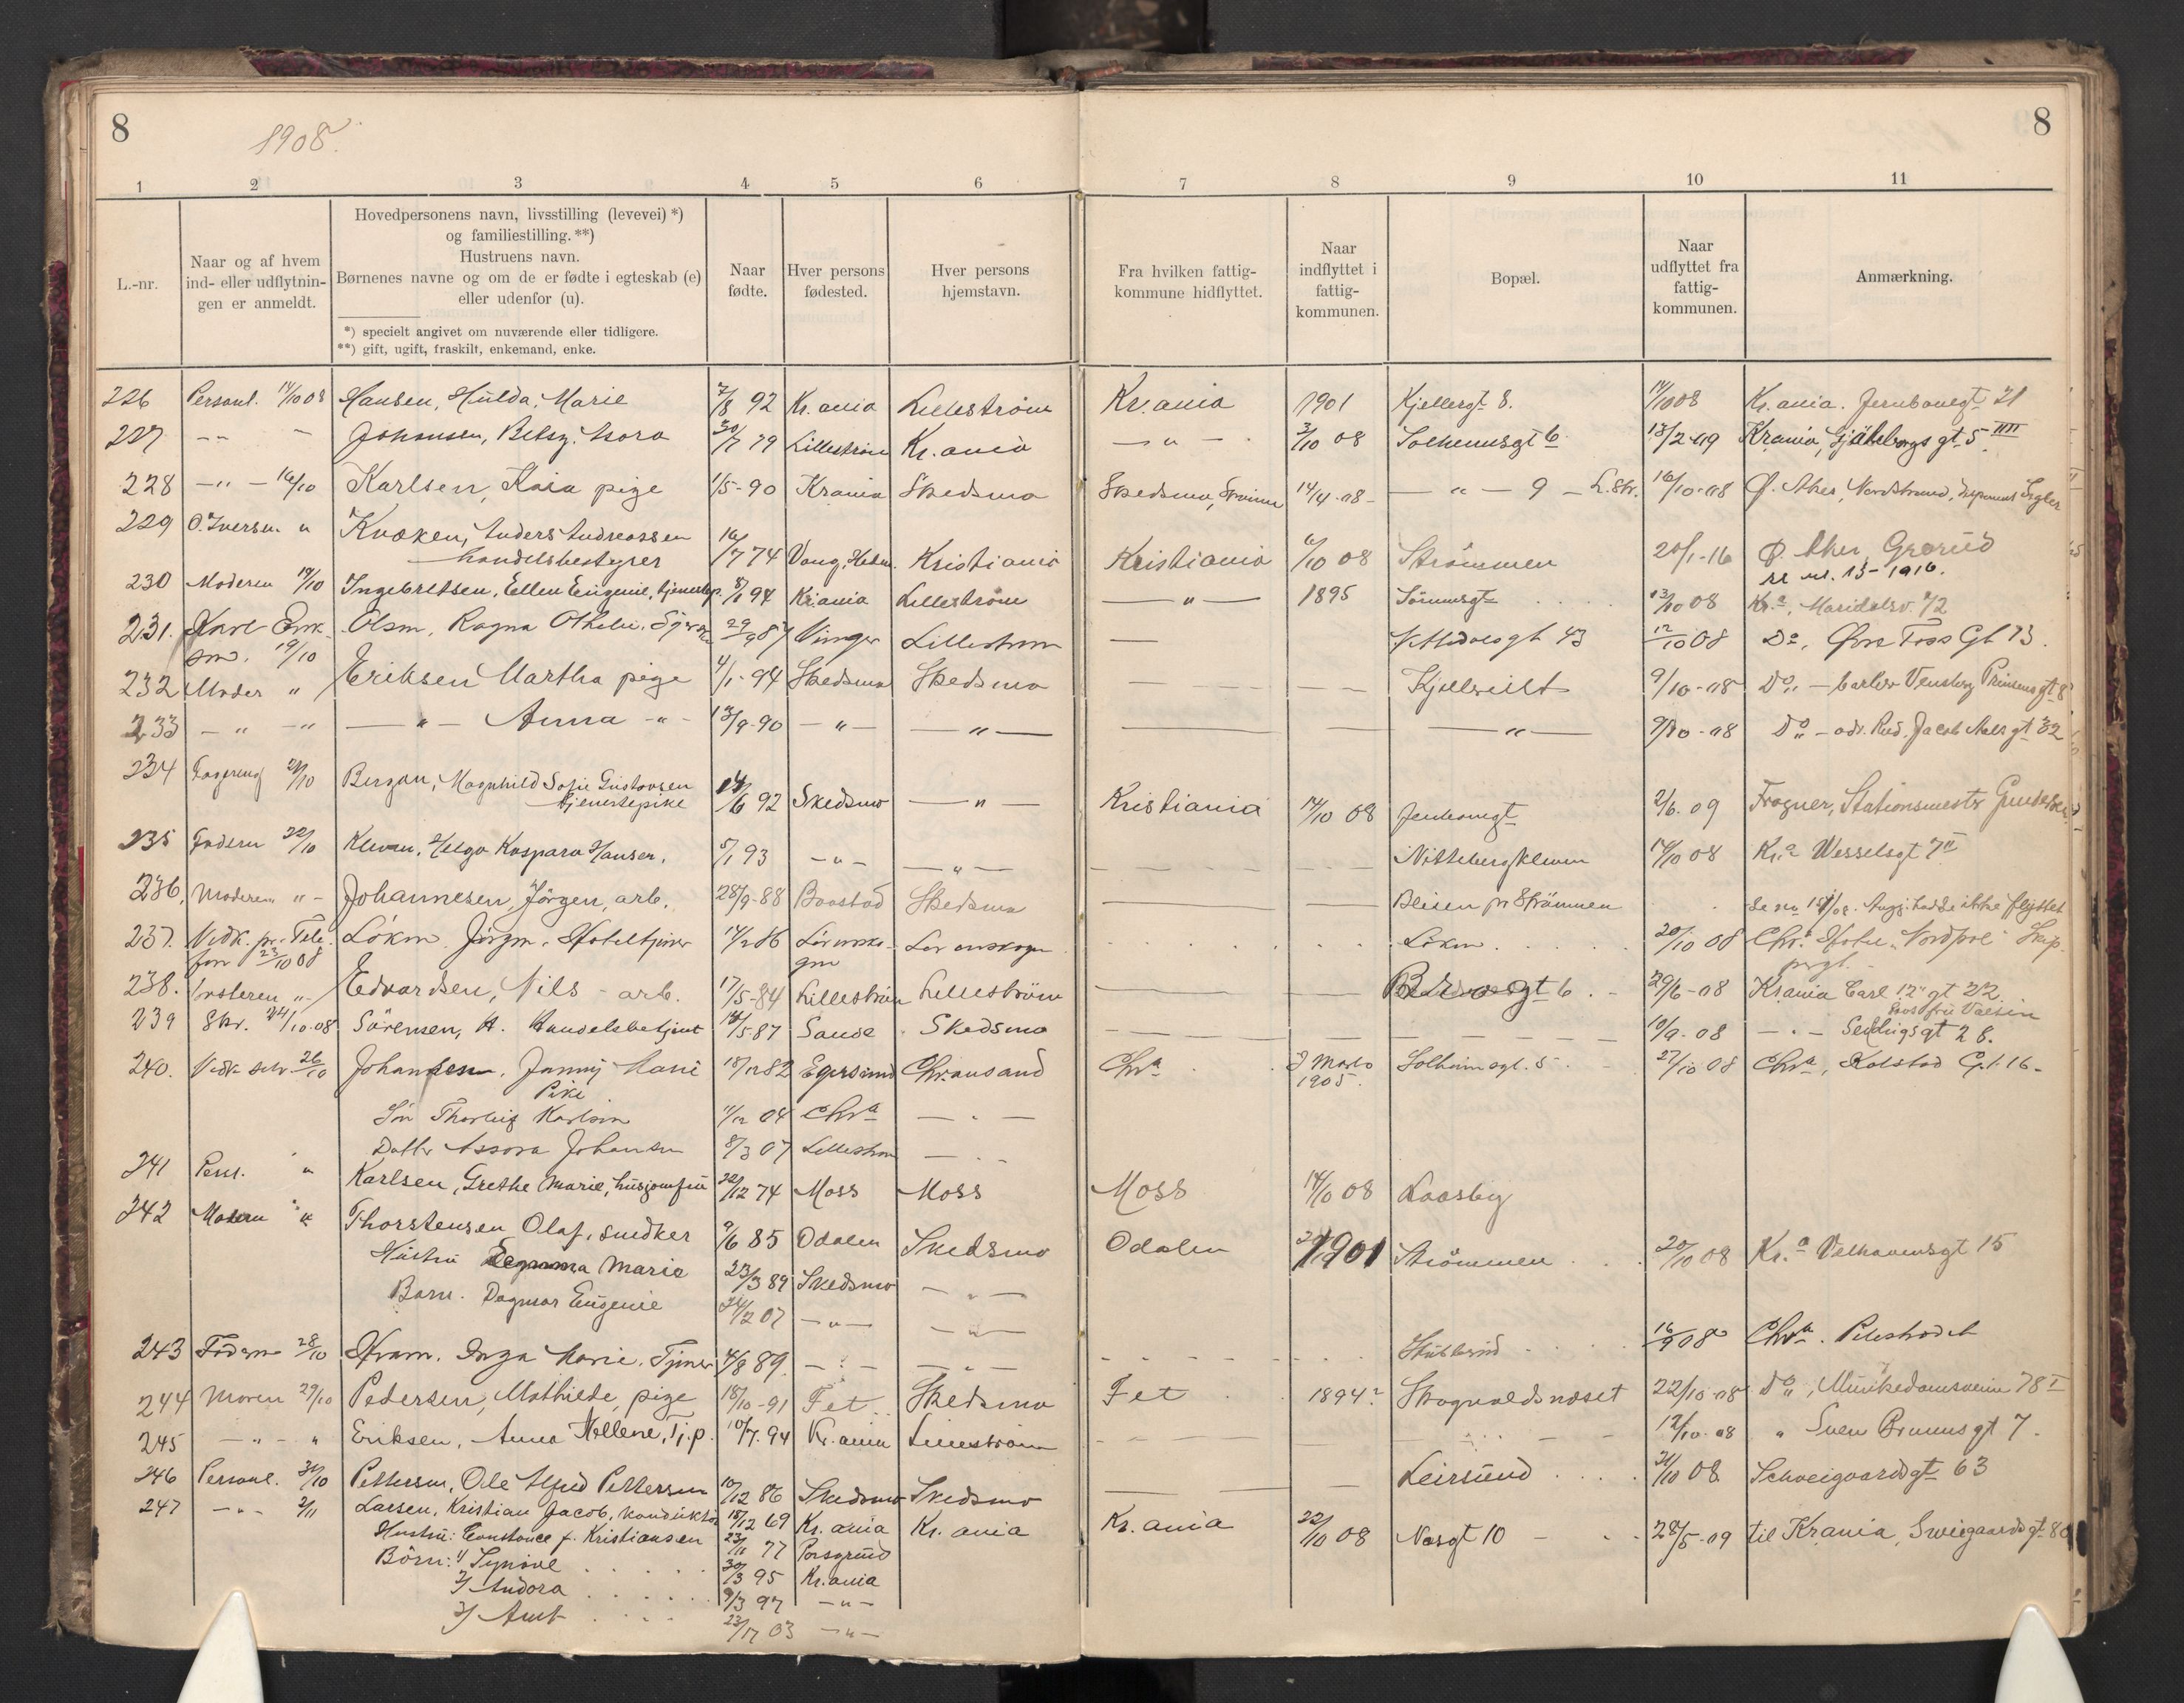 8
8
1908.
1 2 3 4 5 6 7 8 9 10 11
L.-nr.
Naar og af hvem
ind- eller udflytnin-
gen er anmeldt.
Hovedpersonens navn, livsstilling (levevei) *)
og familiestilling. **)
Hustruens navn.
Børnenes navne og om de er fødte i egteskab (e)
eller udenfor (u).
*) specielt angivet om nuværende eller tidligere.
**) gift, ugift, fraskilt, enkemand, enke.
Naar
fødte.
Hver persons
fødested.
Hver persons
hjemstavn.
Fra hvilken fattig-
kommune hidflyttet.
Naar
indflyttet i
fattig-
kommunen.
Bopæl.
Naar
udflyttet fra
fattig-
kommunen.
Anmærkning.
226 Personl. 14/10 08 Hansen, Hulda, Marie 7/8 92 Kr.ania Lillestrøm Kr.ania 1901 Kjellergt 8. 14/10 08 Kr.ania. Jernbanegt 21
227 -- - Johansen, Betsy, 30/7 79 Lillestrøm Kr.ania -"- 3/10 08 Solheimsgt 6 13/2-09 Krania, gt. 5 IIII
228 -"- 16/10 Karlsen, Kaia pige 1/5-90 Krania Skedsmo Skedsmo, 14/4-08- -"- 9 - L.Str. 16/10-08 Ø. Aker, Nordstrand,
229 O. Iversen " Kvoken, Anders Andreassen
handelsbestyrer 16/7 74 Vang, Hedm. Kristiania Kristiania 6/10 08 Strømmen 20/1-16 Ø. Aker, Grorud
nr. 13-1916.
230 Moderen 19/10 Ingebretsen, Ellen Eugenie, tjenestep. 8/1 94 Kr.ania Lillestrøm -"- 1895 13/10 08 Kr.a, Maridalsv. 72
231. Karl Erik-
sen. 19/10 Olsen, Ragna Othelie. 29/9 87 Vinger Lillestrøm - gt 43 12/10 08 Do, Øvre Foss Gt 13.
232 Moder " Eriksen Martha pige 4/1-94 Skedsmo Skedsmo - - - 9/10-08 Do - Prinsensgt 8
233 -"- -" -"- Anna -"- 13/9-90 -"- -"- - - -"- 9/10-08 Do - Jacob Aalsgt 32
234 21/10 Bergan, Magnhild Sofie Gustavsen
tjenestepike 14/6 92 Skedsmo -"- Kristiania 14/10 08 2/6. 09 Frogner, Stationsmester
235 Faderen 22/10 Helga Kaspara Hansen, 5/1 93 -"- -"- - - 14/10 08 Kr.a Wesselsgt 7 II
236, Moderen "- Johannesen, Jörgen, arb. 28/9-88 Skedsmo - - pr Strømmen ikke flyttet
237. Vedk. pr. Tele-
fon 23/10 08 Löken Jörgen. 14/2 86 Lørensko-
gen Lørenskogen Löken 20/10 08 Chr.a Hotel "Nordpol"
238. " - Edvardsen, Nils - arb. 17/5-84 Lillestrøm Lillestrøm - - gt 6 29/6-08 Krania Carl 12" gt 22
hos fru
239 Skr. 24/10-08 Sørensen, A. Handelsbetjent 14/5 87 Sande Skedsmo - - - 10/9-08 -"- gt 28.
240. Vedk. skr. 26/10 Johansen, Jenny Marie
Pike 18/12 82 Egersund Chr.ansand Chr.a 2 Marts
1905. Solheimsgt. 5 27/10 08 Chr.a, Kolstad Gt. 16-
Sön Karlsen 11/12 04 Chr.a -"-
Datter Johansen 8/3 07 Lillestrøm -"-
241 Pers. " Karlsen, Grethe Marie, husjomfru 22/12 74 Moss Moss Moss 14/10 08
242 Moderen " Thorstensen Olaf, snedker 9/6 85 Odalen Skedsmo Odalen 1901 Strømmen 20/10 08 Kr.a Welhavensgt 15
Hustru Marie 23/3 89 Skedsmo -"-
Barn. Dagmar Eugenie 24/2 07 -"- -"-
243 Faderen 28/10 Kram. Inga Marie. 4/8 89. -"- -"- - - 16/9 08 Chr.a. Pilestrædet
244 Moren 29/10 Pedersen, Mathilde, pige 18/10-91 Fet Skedsmo Fet 1894? 22/10-08 Do, Munkedamsveien 78 I
245 -"- " Eriksen, Anna Hellene, Tj.p. 10/7. 94 Kr.ania Lillestrøm - - 12/10-08 " Sven Bruunsgt 7.
246 Personl. 31/10 Pettersen, Ole Alfred Pettersen 10/12 86 Skedsmo Skedsmo - - Leirsund 31/10 08 Schweigaardsgt 63
247 -"- 2/11 Larsen, Kristian Jacob, konduktör 18/12 69 Kr.ania Kr.ania Kr.ania 22/10 08 Nesgt 10 - 28/5-09 til Krania, Sweigaardsgt 80
Hustru: Constance f. Kristiansen 23/11 77 Porsgrund
Börn: 1/ Synöve 30/3 95 Kr.ania
2/ Andora 9/3 97 -"-
3/ 23/17 03 -"-